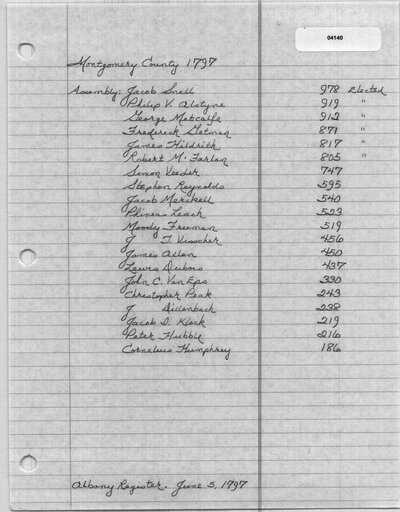 04140
Montgomery County 1797
Assembly: Jacob Snell 978 Elected
Philip V. Alstyne 919 "
George Metcalfe 912 "
Frederick Getman 871 "
James Hildrith 817 "
Robert Mc Farlan 805 "
Simon Veeder 747
Stephen Reynolds 595
Jacob Merckell 540
Phineas Leach 523
Moody Freeman 519
J T. Visscher 456
James Allen 450
Lewis Dubois 437
John C. Van Eps 330
Christopher Peak 243
J Dillenbach 238
Jacob D. Klock 219
Peter Hubble 216
Cornelius Humphrey 186
Albany Register. June 5, 1797